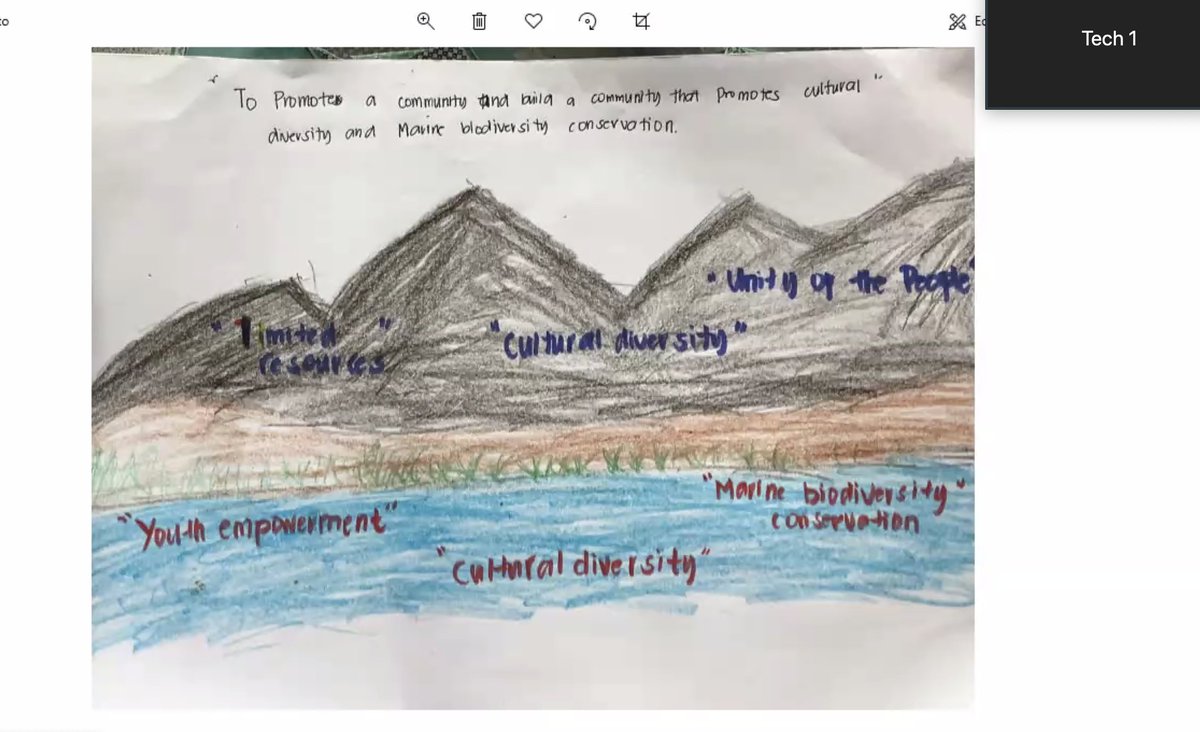 Tech 1
" To Promotes a community and build a community that promotes cultural "
diversity and Marine biodiversity conservation.
" Unity of the People"
" limited "
resources
"Cultural diversity"
"Marine biodiversity"
conservation
"Youth empowerment"
"Cultural diversity"